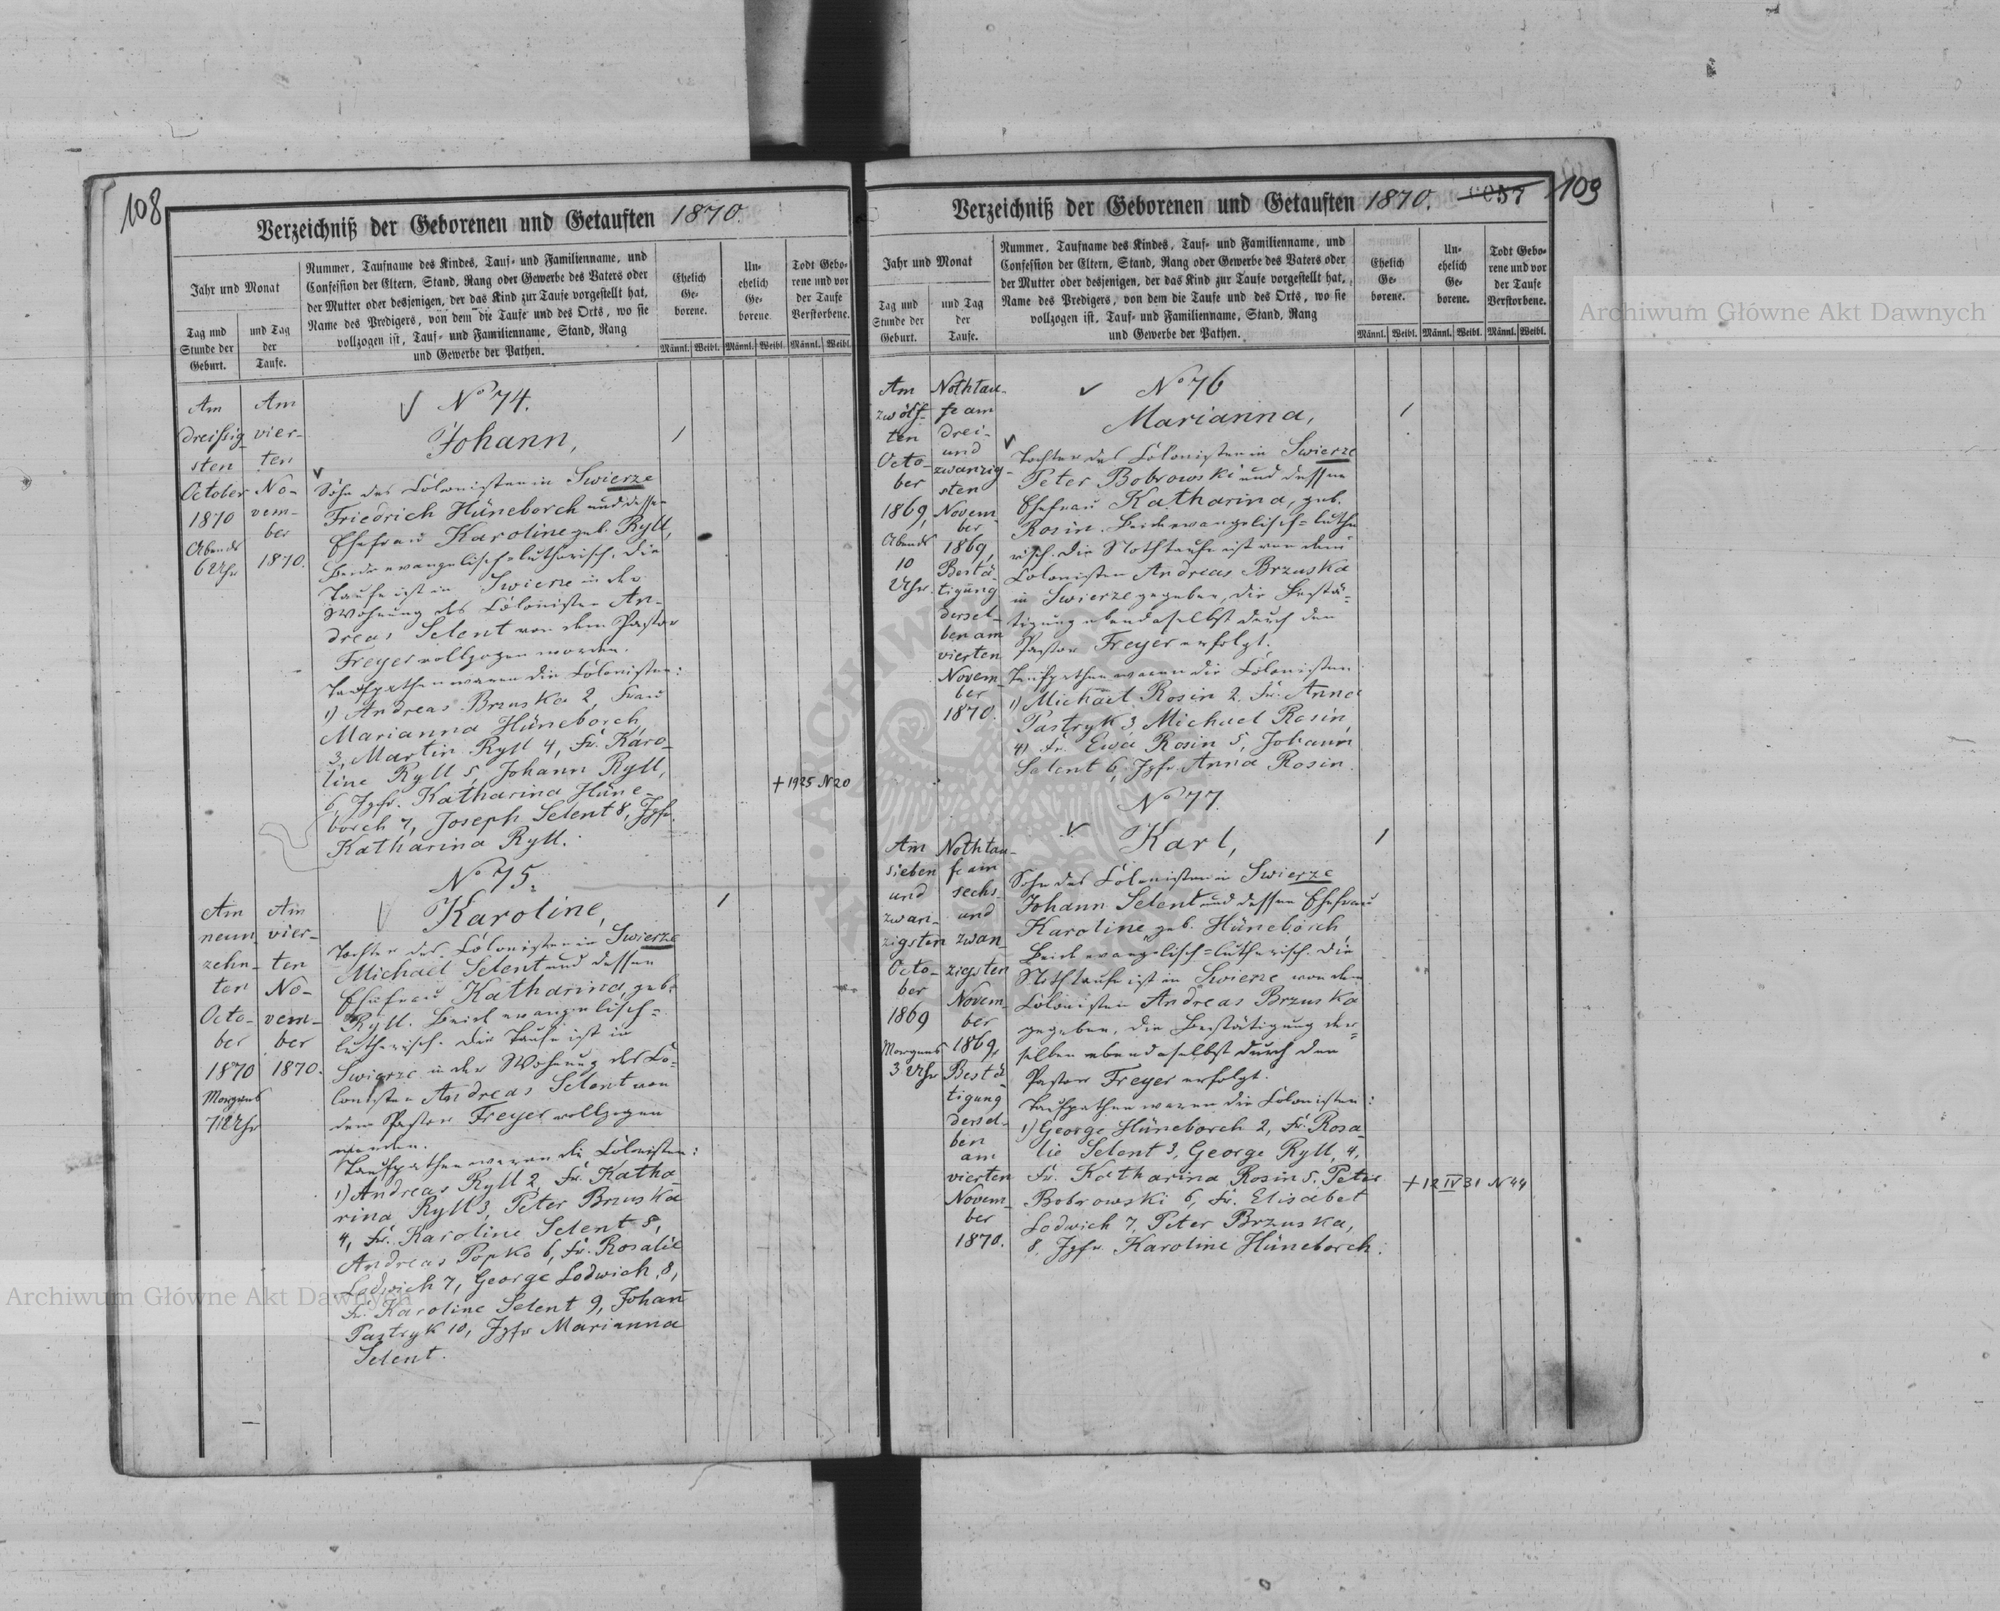 108
Verzeichniß der Geborenen und Getauften 1870.
Jahr und Monat
Tag und
Stunde der
Geburt.
und Tag
der
Taufe.
Nummer, Taufname des Kindes, Tauf- und Familienname, und
Confession der Eltern, Stand, Rang oder Gewerbe des Vaters oder
der Mutter oder desjenigen, der das Kind zur Taufe vorgestellt hat,
Name des Predigers, von dem die Taufe und des Orts, wo sie
vollzogen ist, Tauf- und Familienname, Stand, Rang
und Gewerbe der Pathen.
Ehelich
Ge-
borene.
Un-
ehelich
Ge-
borene.
Todt Gebo-
rene und vor
der Taufe
Verstorbene.
Männl. Weibl. Männl. Weibl. Männl. Weibl.
Am
dreißig-
sten
October
1870
Abends
6 Uhr
Am
vier-
ten
No-
vem-
ber
1870.
No 74.
Johann,
1
Sohn des Colonisten in Swierze
Friedrich Hüneborch und dessen
Ehefrau Karoline geb. Ryll,
Beide evangelisch-lutherisch. Die
Taufe ist in Swierze in der
Wohnung des Colonisten An-
dreas Selent von dem Pastor
Freyer vollzogen worden.
Taufpathen waren die Colonisten:
1) Andreas Brzuska 2, Frau
Marianna Hüneborch,
3, Martin Ryll 4, Fr. Karo-
line Ryll 5, Johann Ryll,
6, Jgfr. Katharina Hüne-
borch 7, Joseph Selent 8, Jgfr.
Katharina Ryll.
+ 1925 N 20
Am
neun-
zehn-
ten
Octo-
ber
1870
Morgens
7 1/2 Uhr
Am
vier-
ten
No-
vem-
ber
1870.
No 75.
Karoline,
1
Tochter des Colonisten in Swierze
Michael Selent und dessen
Ehefrau Katharina, geb.
Ryll. Beide evangelisch-
lutherisch. Die Taufe ist in
Swierze in der Wohnung des Co-
lonisten Andreas Selent von
dem Pastor Freyer vollzogen
worden.
Taufpathen waren die Colonisten:
1) Andreas Ryll 2, Fr. Katha-
rina Ryll 3, Peter Brzuska
4, Fr. Karoline Selent 5,
Andreas Popko 6, Fr. Rosalie
Lodwich 7, George Lodwich, 8,
Fr. Karoline Selent 9, Johan
Pastryk 10, Jgfr Marianna
Selent.
109
Verzeichniß der Geborenen und Getauften 1870.
Jahr und Monat
Tag und
Stunde der
Geburt.
und Tag
der
Taufe.
Nummer, Taufname des Kindes, Tauf- und Familienname, und
Confession der Eltern, Stand, Rang oder Gewerbe des Vaters oder
der Mutter oder desjenigen, der das Kind zur Taufe vorgestellt hat,
Name des Predigers, von dem die Taufe und des Orts, wo sie
vollzogen ist, Tauf- und Familienname, Stand, Rang
und Gewerbe der Pathen.
Ehelich
Ge-
borene.
Un-
ehelich
Ge-
borene.
Todt Gebo-
rene und vor
der Taufe
Verstorbene.
Männl. Weibl. Männl. Weibl. Männl. Weibl.
Am
zwölf-
ten
Octo-
ber
1869,
Abends
10
Uhr.
Nothtau-
fe am
drei-
und
zwanzig-
sten
Novem-
ber
1869,
Bestä-
tigung
dersel-
ben am
vierten
Novem-
ber
1870.
No 76
Marianna,
1
Tochter des Colonisten in Swierze
Peter Bobrowski und dessen
Ehefrau Katharina, geb.
Rosin. Beide evangelisch-luthe-
risch. Die Nothtaufe ist von dem
Colonisten Andreas Brzuska
in Swierze gegeben, die Bestä-
tigung ebendaselbst durch den
Pastor Freyer erfolgt.
Taufpathen waren die Colonisten
1) Michael Rosin 2. Fr. Anna
Pastryk 3, Michael Rosin,
4) Fr. Ewa Rosin 5, Johann
Selent 6, Jgfr. Anna Rosin.
Am
sieben
und
zwan-
zigsten
Octo-
ber
1869
Morgens
3 Uhr
Nothtau-
fe am
sechs-
und
zwan-
zigsten
Novem-
ber
1869,
Bestä-
tigung
dersel-
ben
am
vierten
Novem-
ber
1870.
No 77.
Karl,
1
Sohn des Colonisten in Swierze
Johann Selent und dessen Ehefrau
Karoline, geb. Hüneborch,
Beide evangelisch-lutherisch. Die
Nothtaufe ist in Swierze von dem
Colonisten Andreas Brzuska
gegeben, die Bestätigung der-
selben ebendaselbst durch den
Pastor Freyer erfolgt.
Taufpathen waren die Colonisten:
1) George Hüneborch 2, Fr. Rosa-
lie Selent 3, George Ryll, 4,
Fr. Katharina Rosin 5, Peter
Bobrowski 6, Fr. Elisabet
Lodwich 7, Peter Brzuska,
8, Jgfr. Karoline Hüneborch.
+ 12 IV 31 N 44
Archiwum Główne Akt Dawnych
Archiwum Główne Akt Dawnych